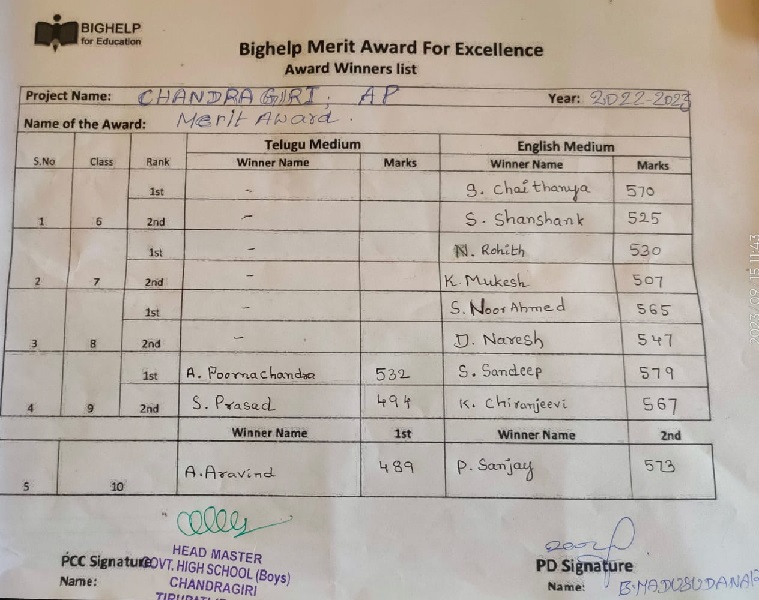 BIGHELP
for Education
Bighelp Merit Award For Excellence
Award Winners list
Project Name: CHANDRAGIRI, AP Year: 2022-2023
Name of the Award: Merit Award.
Telugu Medium English Medium
S.No Class Rank Winner Name Marks Winner Name Marks
1st - S. Chaithanya 570
1 6 2nd - S. Shanshank 525
1st - N. Rohith 530
2 7 2nd - K. Mukesh 507
1st - S. Noor Ahmed 565
3 8 2nd - D. Naresh 547
1st A. Poornachandra 532 S. Sandeep 579
4 9 2nd S. Prasad 494 K. Chiranjeevi 567
Winner Name 1st Winner Name 2nd
5 10 A. Aravind 489 P. Sanjay 573
PCC Signature PD Signature
HEAD MASTER
GOVT. HIGH SCHOOL (Boys)
CHANDRAGIRI
Name: Name: